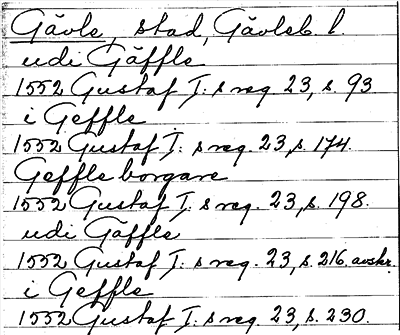 Gävle, stad, Gävleb. l.
udi Gäffle
1552 Gustaf I:s reg. 23, s. 93
i Geffle
1552 Gustaf I:s reg. 23, s. 174.
Geffle borgare
1552 Gustaf I:s reg. 23, s. 198.
udi Gäffle
1552 Gustaf I:s reg. 23, s. 216. avskr.
i Geffle
1552 Gustaf I:s reg. 23, s. 230.